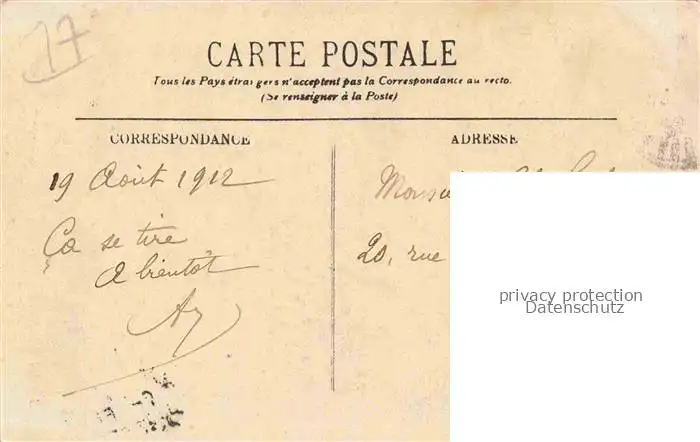 17
CARTE POSTALE
Tous les Pays étrangers n'acceptent pas la Correspondance au recto.
(Se renseigner à la Poste)
CORRESPONDANCE
ADRESSE
19 Août 1912
Ça se tire
A bientôt
20, rue
privacy protection
Datenschutz